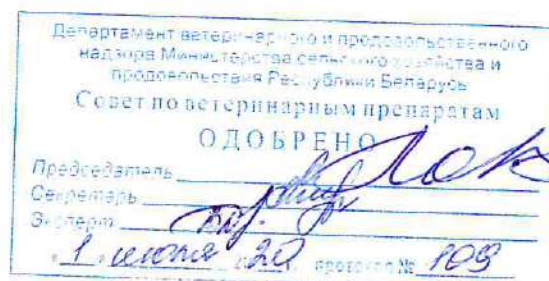 Департамент ветеринарного и продовольственного
надзора Министерства сельского хозяйства и
продовольствия Республики Беларусь
Совет по ветеринарным препаратам
ОДОБРЕНО
Председатель
Секретарь
Эксперт
"1" июля 2020 г. протокол № 109